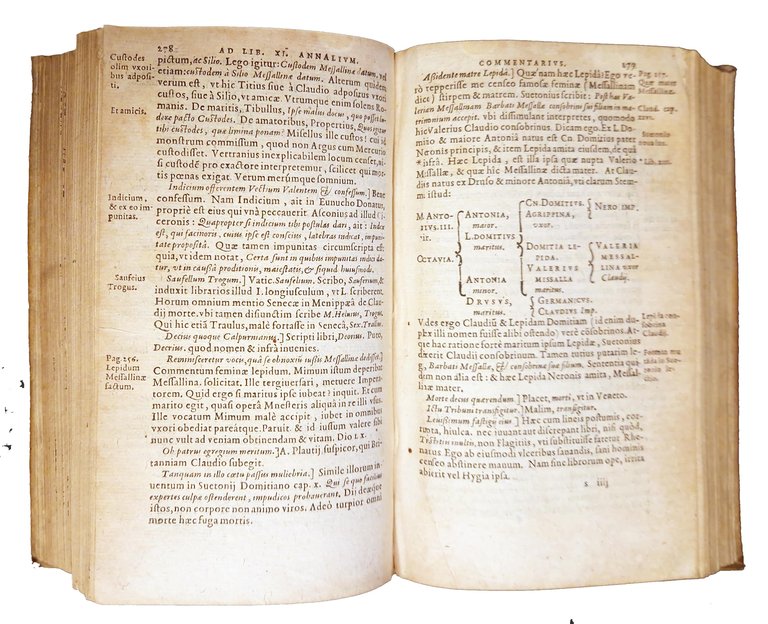 278 AD LIB. XI. ANNALIVM.
Custodes
olim vxori-
bus adposi-
ti.
pictum, ac Silio. Lego igitur: Custodem Messallinæ datum, vel
etiam: custodem à Silio Messallinæ datum. Alterum quidem
verum est, vt hic Titius siue à Claudio adpositus vxori
custos, siue à Silio, vt amicæ. Vtrumque enim solens Ro-
Et amicis.
manis. De maritis, Tibullus, Ipse malus docui, quo posset lu-
dere pacto Custodes. De amatoribus, Propertius, Quos igitur
tibi custodes, quæ limina ponam? Misellus ille custos! cui id
monstrum commissum, quod non Argus cum Mercurio
custodisset. Vertranius inexplicabilem locum censet, ni-
si custodẽ pro exactore interpremur, scilicet qui mori-
tis pœnas exigat. Verum mersmque somnium.
Indicium,
& ex eo im-
punitas.
Indicium offerentem Vectium Valentem & confessum.] Bene
confessum. Nam Indicium, ait in Eunucho Donatus,
propriè est eius qui vnà peccauerit. Asconius ad illud Ci-
ceronis: Quapropter si indicium tibi postulas dari, ait: Index
est, qui facinoris, cuius ipse est conscius, latebras indicat, impuni-
tate proposita. Quæ tamen impunitas circumscripta est:
quia, vt idem notat, Certa sunt in quibus impunitas indici da-
tur, vt in caussâ proditionis, maiestatis, & siquid huiusmodi.
Saufeius
Trogus.
Saufellum Trogum.] Vatic. Saufelum. Scribo, Saufeium, &
induxit librarios illud I. longiusculum, vt L scriberent.
Horum omnium mentio Senecæ in Menippæâ de Clau-
dij morte. vbi tamen disiunctim scribe M. Heluius, Trogus.
Qui hic etiã Traulus, malè fortasse in Senecâ, Sex. Trallus.
Decius quoque Calpurnianus.] Scripti libri, Deonus. Puto,
Decrius. quod nomen & infrà inuenies.
Pag 256.
Lepidum
Messallinæ
factum.
Reminisceretur vocis, quâ se obnoxiũ iussis Messallinæ dedisset.]
Commentum feminæ lepidum. Mimum istum deperibat
Messallina. solicitat. Ille tergiuersari, metuere Impera-
torem. Quid ergo si maritus ipse iubeat? inquit. Et cum
marito egit, quasi operâ Mnesteris aliquâ in re illi vsus.
Ille vocatum Mimum malè accipit, iubet in omnibus
vxori obediat pareátque. Paruit. & id iussum valere sibi
nunc vult ad veniam obtinendam & vitam. Dio LX.
Ob patrui egregium meritum.] A. Plautij, suspicor, qui Bri-
tanniam Claudio subegit.
Tanquam in illo cœtu passus muliebria.] Simile illorum in-
uentum in Suetonij Domitiano cap. X. Qui se quo facilius
expertes culpæ ostenderent, impudicos probauerant. Dii deæque
istos, non corpore non animo viros. Adeò turpior omni
morte hæc fuga mortis.
COMMENTARIVS. 279
Assidente matre Lepidâ.] Quænam hæc Lepida? Ego ve-
rò repperisse me censeo famosæ feminæ (Messallinam
dico) stirpem & matrem. Suetonius scribit: Post has Va-
leriam Messallinam Barbati Messallæ consobrini sui filiam in ma-
trimonium accepit. vbi dissimulant interpretes, quomodo
hic Valerius Claudio consobrinus. Dicam ego. Ex L. Do-
mitio & maiore Antoniâ natus est Cn. Domitius pater
Neronis principis, & item Lepida amita eiusdem, de quâ
infrà. Hæc Lepida, est illa ipsa quæ nupta Valerio
Messallæ, & quæ hîc Messallinæ dicta mater. At Clau-
dius natus ex Druso & minore Antoniâ, vti clarum Stem-
ma istud:
M. ANTO-
NIVS. III-
ir.
OCTAVIA.
ANTONIA,
maior.
L. DOMITIVS
maritus.
ANTONIA
minor.
DRVSVS,
maritus.
CN. DOMITIVS.
AGRIPPINA,
vxor.
NERO IMP.
DOMITIA LE-
PIDA.
VALERIVS
MESSALLA
maritus.
VALERIA
MESSAL-
LINA vxor
Claudij.
GERMANICVS.
CLAVDIVS Imp.
Vides ergo Claudiũ & Lepidam Domitiam (id enim du-
plex illi nomen fuisse alibi ostendo) verè cõsobrinos. At-
que hac ratione fortè maritum ipsum Lepidæ, Suetonius
dixerit Claudii consobrinum. Tamen rutius putarim le-
gi, Barbati Messallæ, & consobrinæ suæ filiam. Sententia qui-
dem non alia est: & hæc Lepida Neronis amita, Messal-
linæ mater.
Morte decus quærendum.] Placet, morti, vt in Veneto.
Ictu Tribuni transfigitur.] Malim, transigitur.
Leuissimum fastigij eius.] Hæc cum lineis postumis, cor-
rupta, hiulca. nec iuuant aut discrepant libri, nisi quòd,
Tristitiis multis, non Flagitiis, vti substituisse fatetur Rhe-
nanus. Ego ab eiusmodi vlceribus sanandis, sani hominis
censeo abstinere manum. Nam sine librorum ope, irrita
abierit vel Hygia ipsa.
s iiij